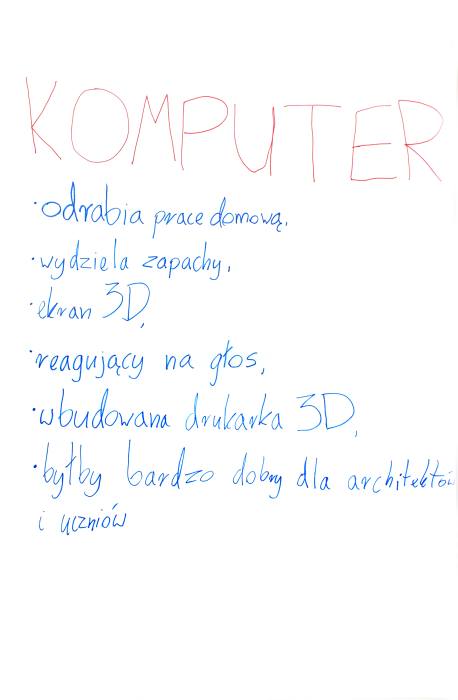 KOMPUTER
· odrabia pracę domową,
· wydziela zapachy,
· ekran 3D,
· reagujący na głos,
· wbudowana drukarka 3D,
· byłby bardzo dobry dla architektów
i uczniów